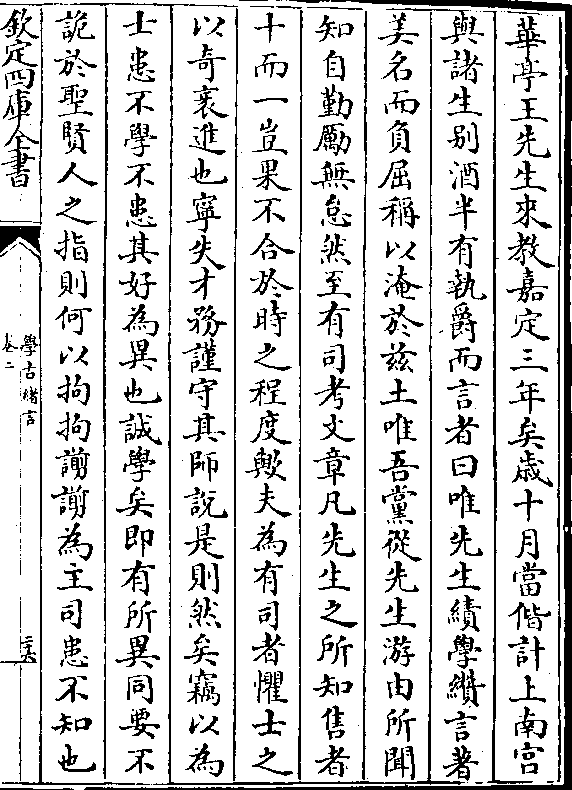 華亭王先生來教嘉定三年矣歲十月當偕計上南宫
與諸生别酒半有執爵而言者曰唯先生績學纘言著
美名而負屈稱以淹於兹土唯吾黨從先生游由所聞
知自勤勵無怠然至有司考文章凡先生之所知售者
十而一豈果不合於時之程度歟夫為有司者懼士之
以奇衺進也寧失才務謹守其師說是則然矣竊以為
士患不學不患其好為異也誠學矣即有所異同要不
詭於聖賢人之指則何以拘拘謭謭為主司患不知也
欽定四庫全書
學古緒言
卷二
二六